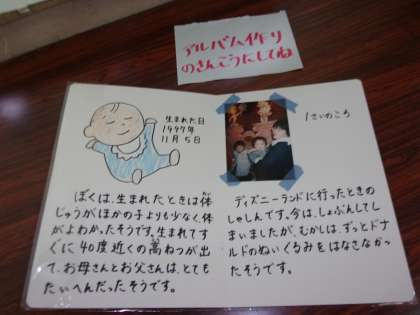 アルバム作り
のさんこうにしてね
生まれた日
1997年
11月5日
ぼくは、生まれたときは体
じゅうがほかの子よりも少なく、体
がよわかったそうです。生まれてす
ぐに40度近くの高ねつが出
て、お母さんとお父さんは、とても
たいへんだったそうです。
1さいのころ
ディズニーランドに行ったときの
しゃしんです。今は、しょぶんしてし
まいましたが、むかしは、ずっとドナ
ルドのぬいぐるみをはなさなかっ
たそうです。